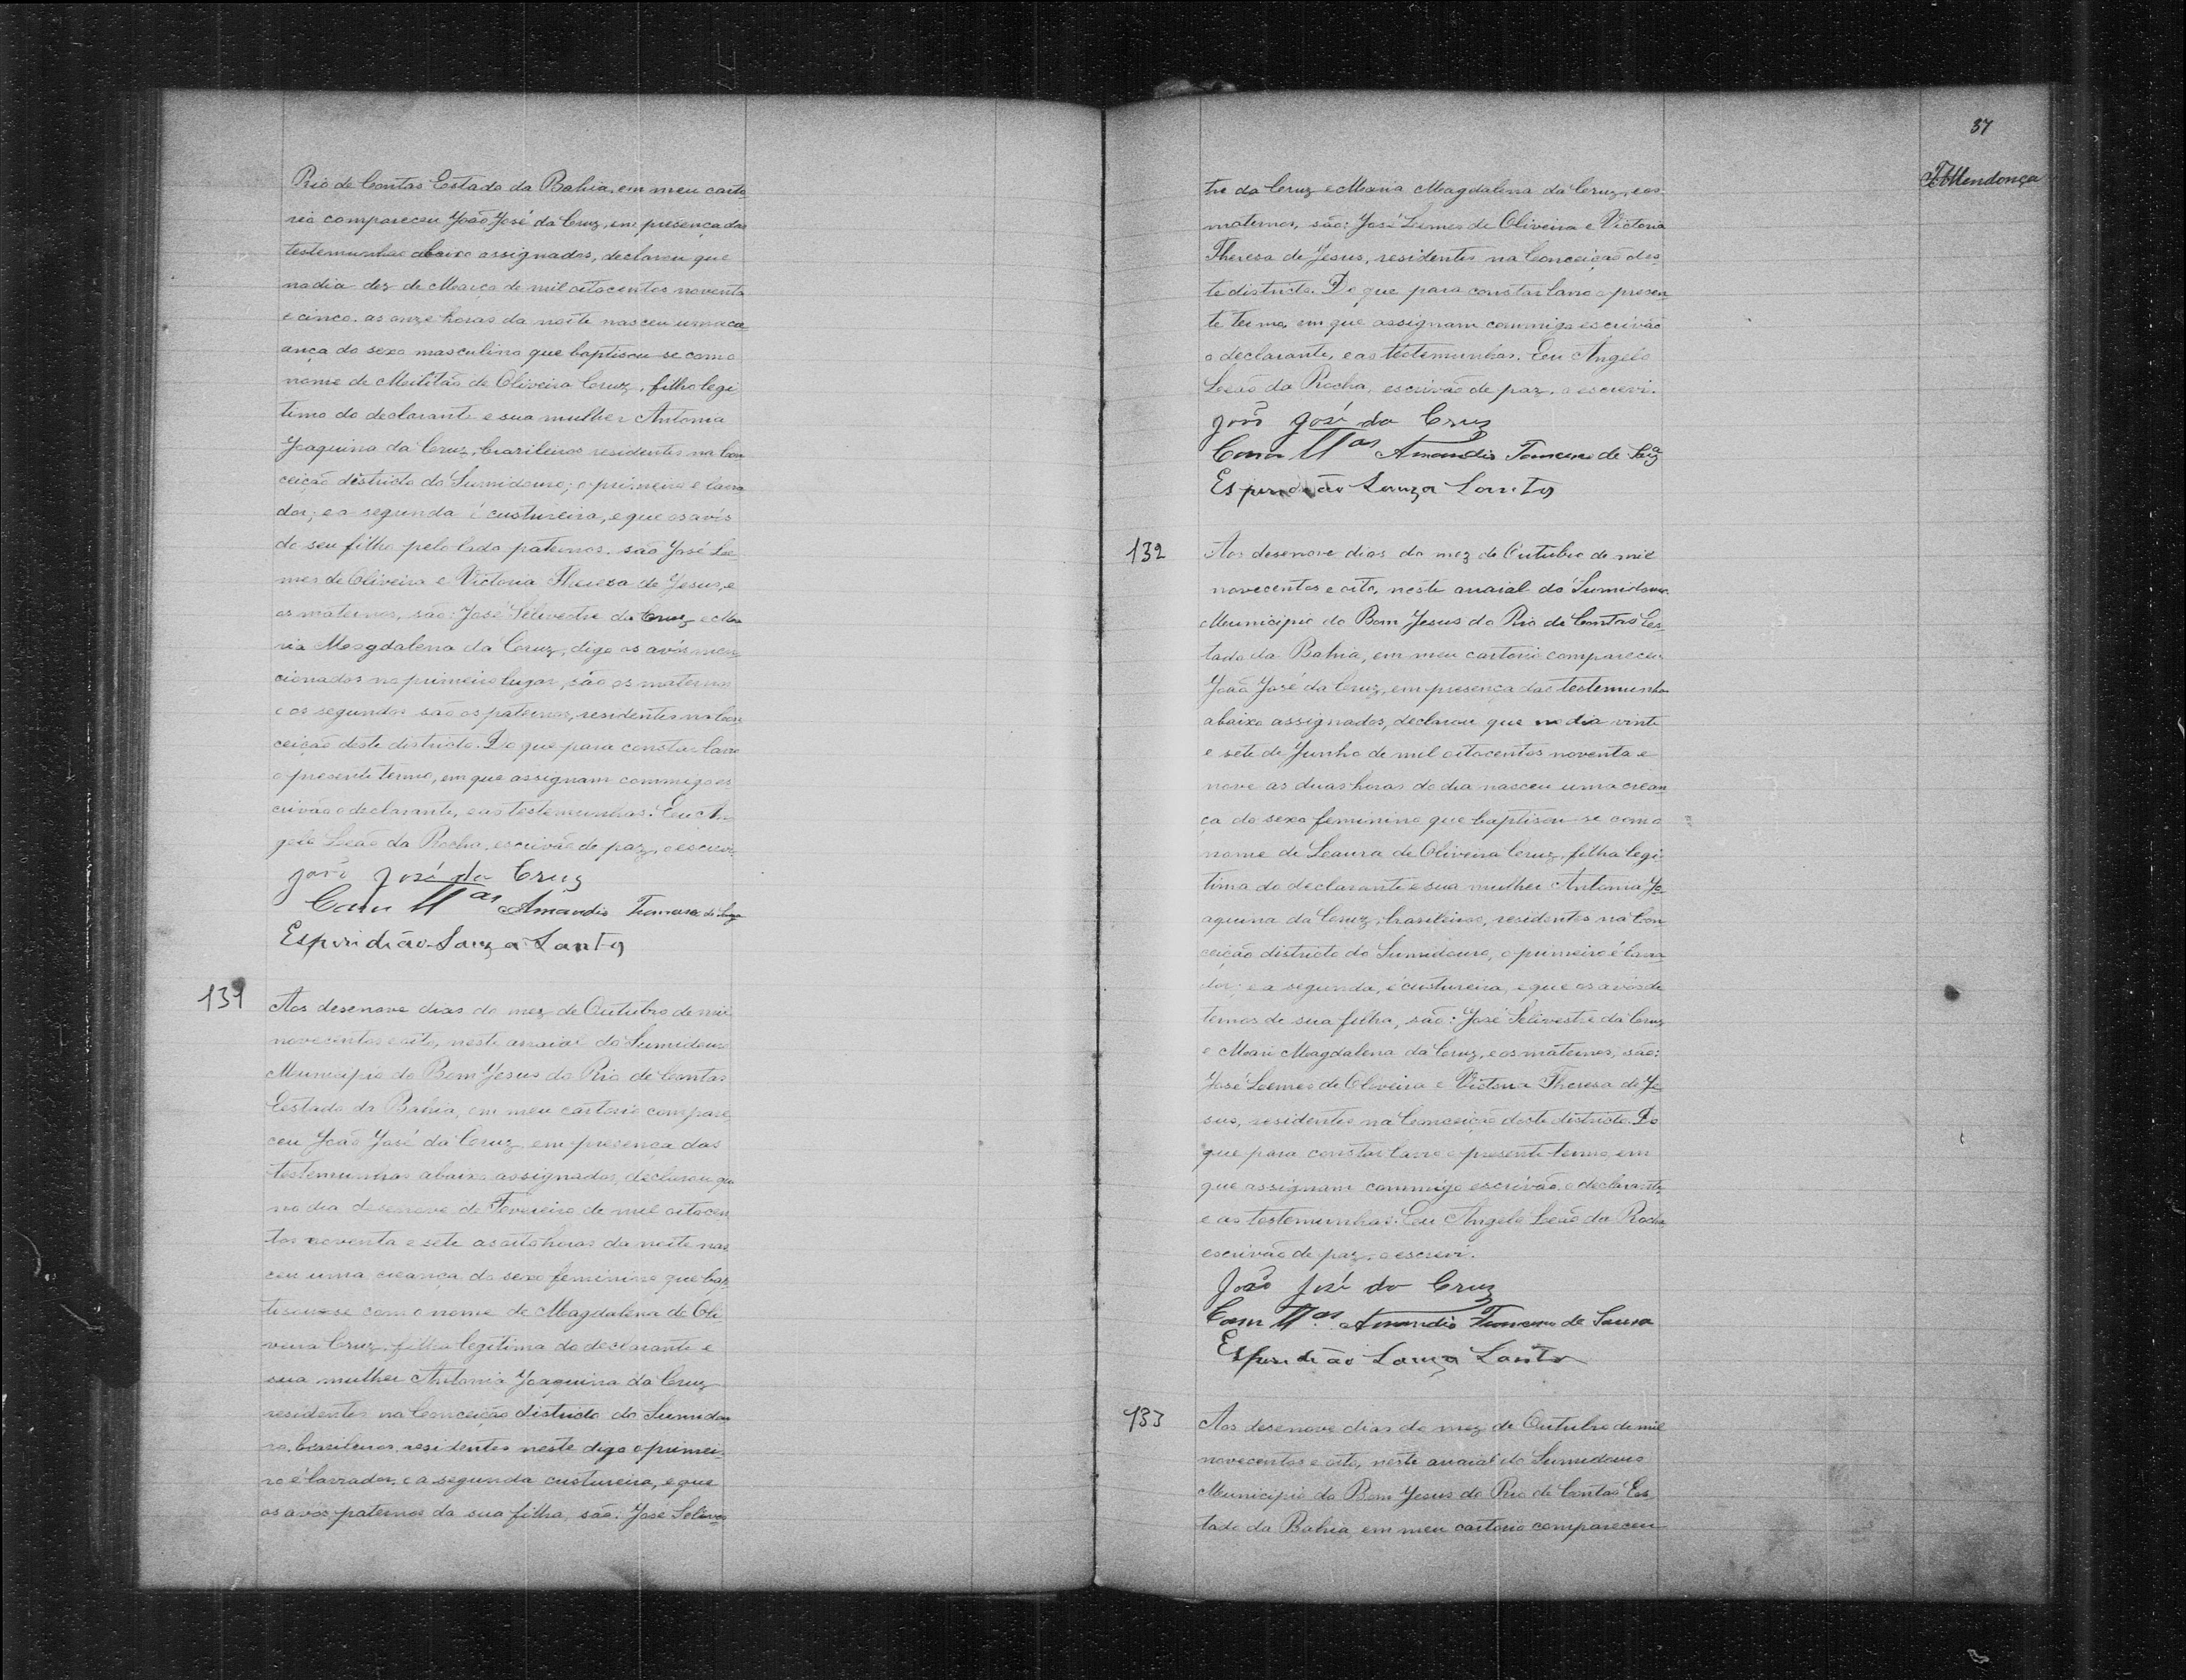 Rio de Contas Estado da Bahia, em meu carto
rio compareceu João José da Cruz, em presença das
testemunhas abaixo assignados, declarou que
no dia dez de Março de mil oitocentos noventa
e cinco as onze horas da noite nasceu uma cre
ança do sexo masculino que baptisou-se com o
nome de Militão de Oliveira Cruz, filho legi
timo do declarante e sua mulher Antonia
Joaquina da Cruz, brasileiros residentes na Con
ceição districto do Sumidouro; o primeiro e lavra
dor; e a segunda é custureira, e que os avós
do seu filho pelo lado paternos. são José Le
mes de Oliveira e Victoria Theresa de Jesus, e
os maternos, são: José Silivestre da Cruz e Ma
ria Magdalena da Cruz, digo os avós men
cionados no primeiro lugar, são os maternos
e os segundos são os paternos, residentes na Con
ceição deste districto. Do que para constar lavro
o presente termo, em que assignam commigo es
crivão o declarante, e as testemunhas. Eu An
gelo Leão da Rocha, escrivão de paz, o escrevi
João José da Cruz
Como Ttas Amandio de Souza
Esperidião Souza Santos
131
Aos desenove dias do mez de Outubro de mil
novecentos e oito, neste arraial do Sumidouro
Municipio do Bom Jesus do Rio de Contas
Estado da Bahia, em meu cartorio compare
ceu João José da Cruz, em presença das
testemunhas abaixo assignados, declarou que
no dia desenove de Fevereiro de mil oitocen
tos noventa e sete as oito horas da noite nas
ceu uma creança do sexo feminino que bap
tisou-se com o nome de Magdalena de Oli
veira Cruz, filha legitima do declarante e
sua mulher Antonia Joaquina da Cruz
residentes na Conceição districto do Sumidou
ro, brasileiros, residentes neste digo o primei-
ro é lavrador, e a segunda custureira, e que
os avós paternos da sua filha, são: José Silives
37
Mendonça
tre da Cruz e Maria Magdalena da Cruz, e os
maternos, são: José Lemes de Oliveira e Victoria
Theresa de Jesus, residentes na Conceição des
te districto. Do que para constar lavro o presen
te termo, em que assignam commigo escrivão
o declarante, e as testemunhas. Eu Angelo
Leão da Rocha, escrivão de paz, o escrevi.
João José da Cruz
Como Ttas Amandio de Souza
Esperidião Souza Santos
132
Aos desenove dias do mez de Outubro de mil
novecentos e oito, neste arraial do Sumidouro
Municipio do Bom Jesus do Rio de Contas Es
tado da Bahia, em meu cartorio compareceu
João José da Cruz, em presença das testemunhas
abaixo assignados, declarou que no dia vinte
e sete de Junho de mil oitocentos noventa e
nove as duas horas do dia nasceu uma crean
ça do sexo feminino que baptisou-se com o
nome de Leaura de Oliveira Cruz, filha legi
tima do declarante e sua mulher Antonia Jo
aquina da Cruz, brasileiros, residentes na Con
ceição districto do Sumidouro, o primeiro é lavra
dor; e a segunda, é custureira, e que os avós de
ternos de sua filha, são: José Silivestre da Cruz
e Mari Magdalena da Cruz, e os maternos, são:
José Lemes de Oliveira e Victoria Theresa de Je
sus, residentes na Conceição deste districto. Do
que para constar lavro o presente termo, em
que assignam commigo escrivão, o declarante,
e as testemunhas. Eu Angelo Leão da Rocha
escrivão de paz, o escrevi.
João José da Cruz
Com Ttas Amandio de Sousa
Esperidião Souza Santos
133
Aos desenove dias do mez de Outubro de mil
novecentos e oito, neste arraial do Sumidouro
Municipio do Bom Jesus do Rio de Contas Es
tado da Bahia, em meu cartorio compareceu